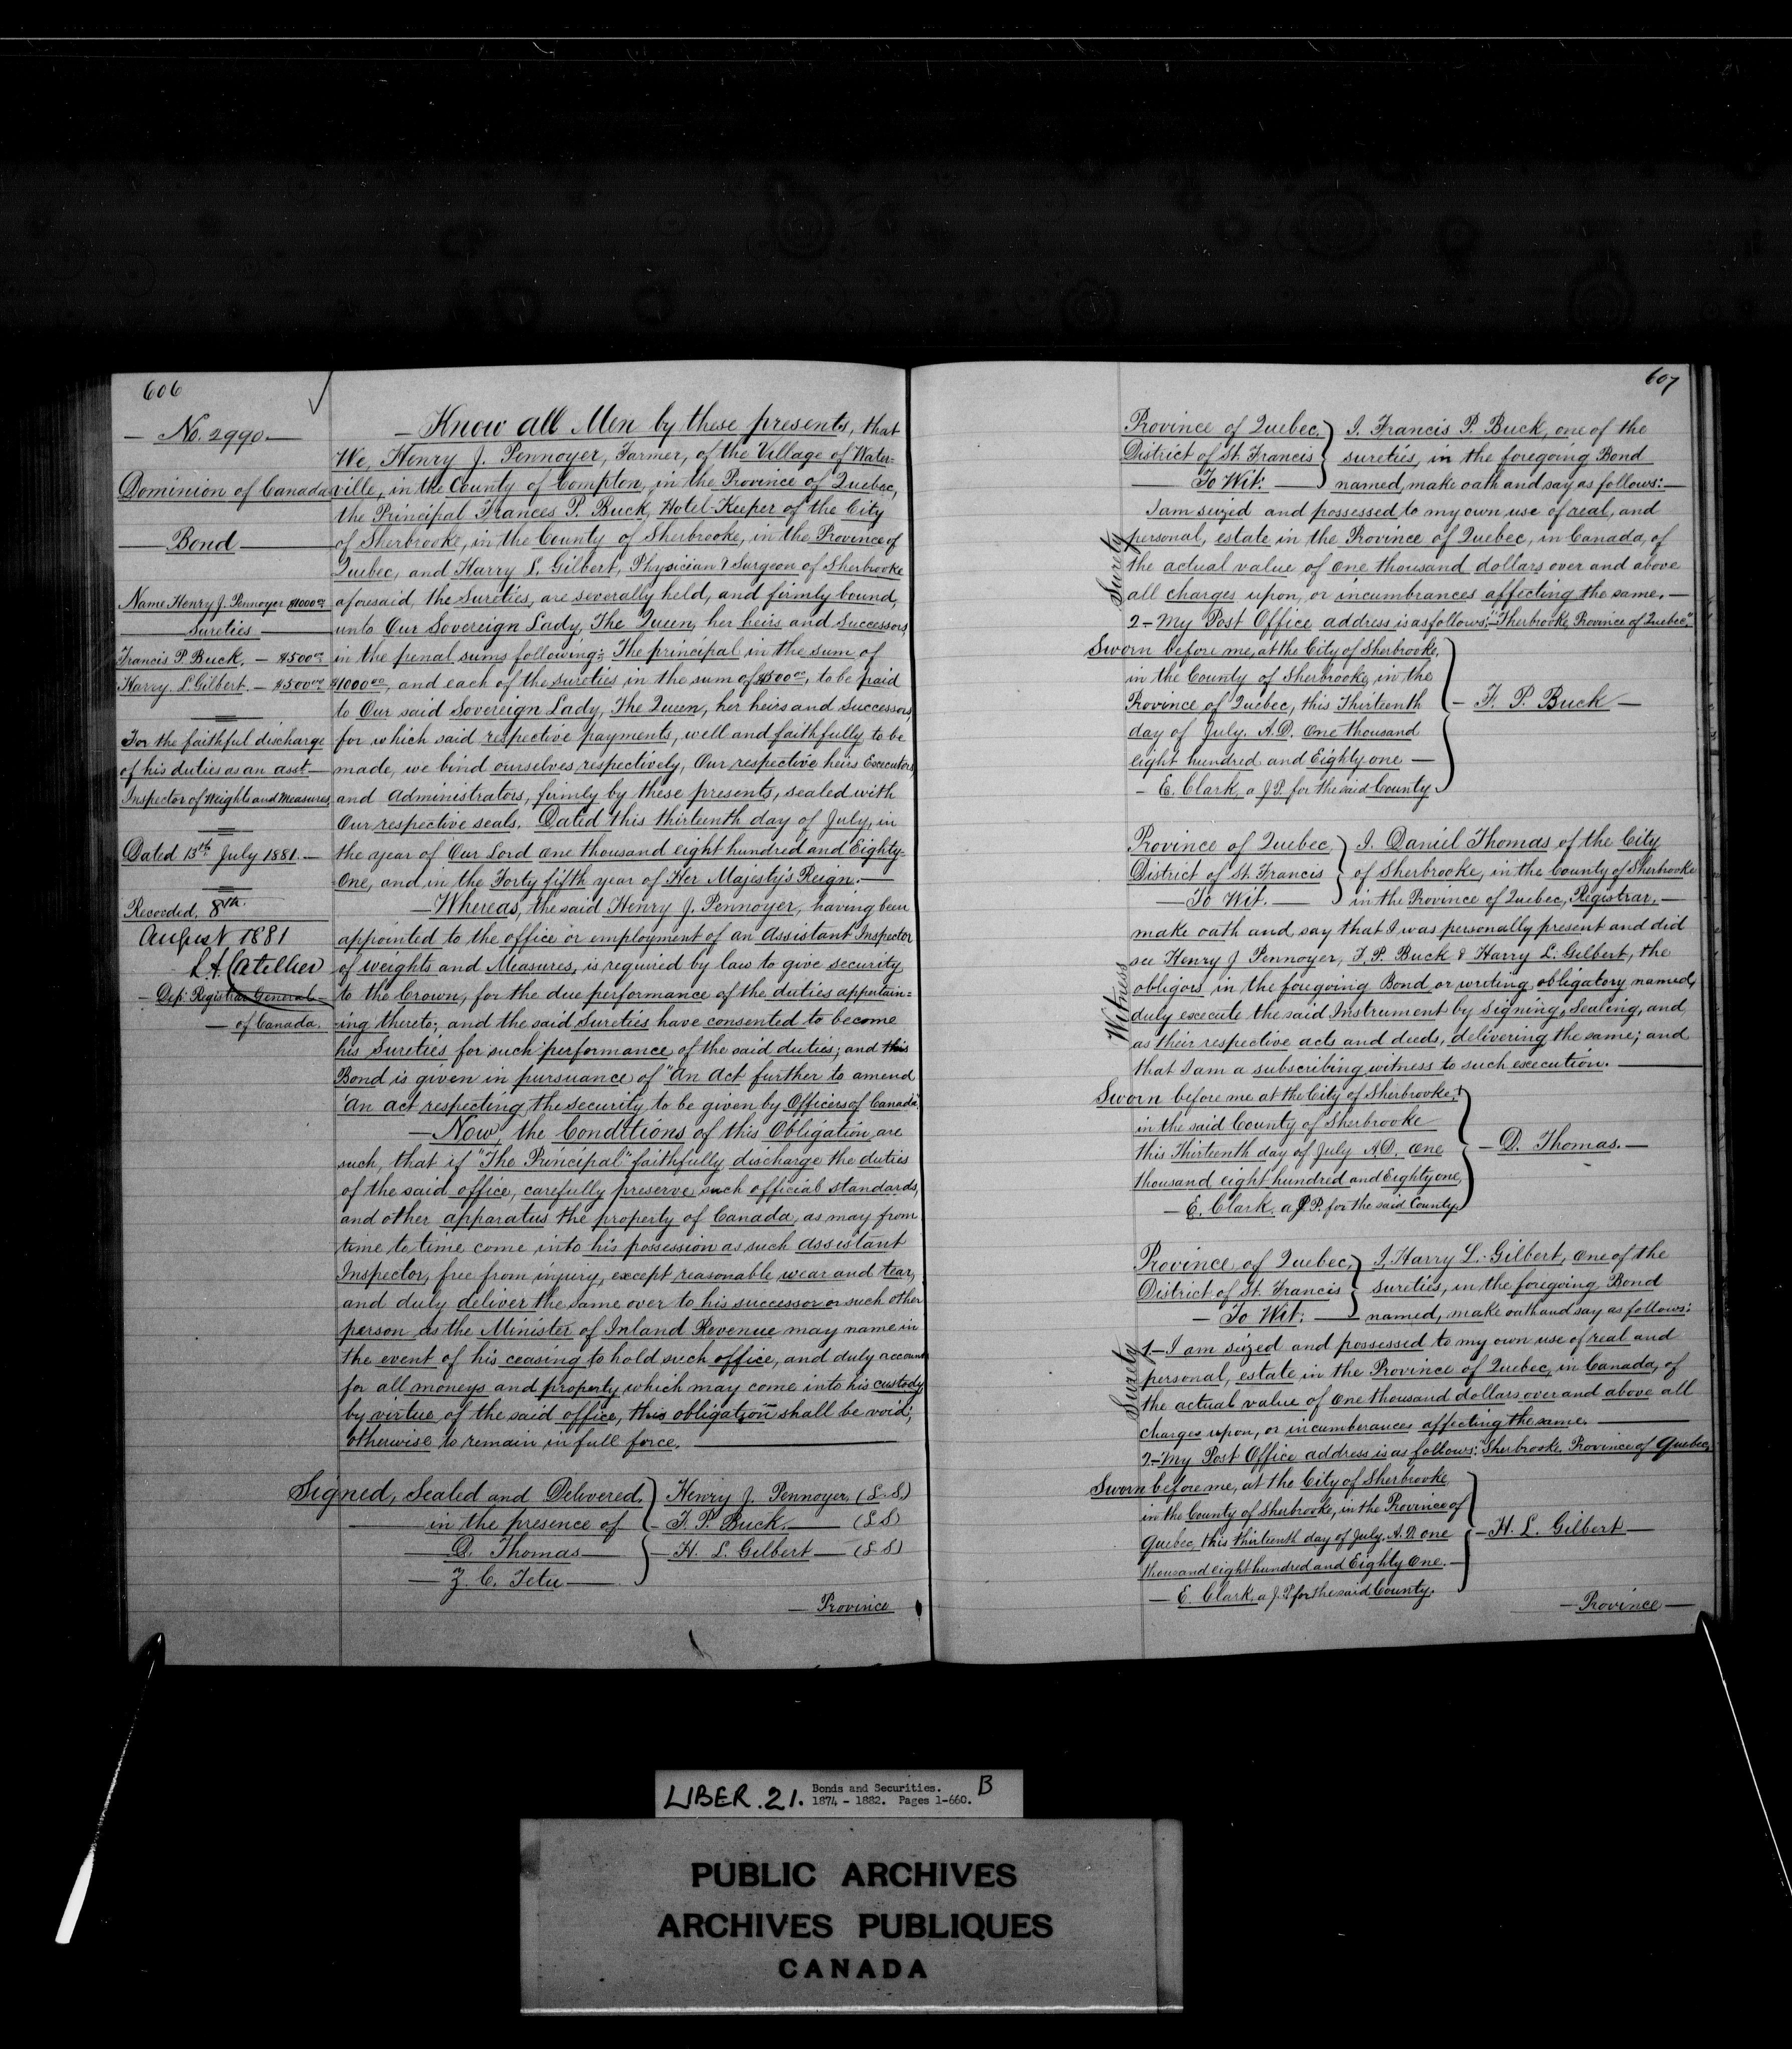 606
No. 2990.
Dominion of Canada
Bond
Name Henry J. Pennoyer $1000.00
Sureties
Francis P. Buck. — $500.00
Harry L. Gilbert. — $500.00
For the faithful discharge
of his duties as an asst.
Inspector of Weights and Measures
Dated 13th July 1881. —
Recorded, 8th
August 1881
L. A. Catellier
Dep: Registrar General
of Canada.
— Know all Men by these presents, that
We, Henry J. Pennoyer, Farmer, of the Village of Water=
ville, in the County of Compton, in the Province of Quebec,
the Principal Frances P. Buck, Hotel-Keeper of the City
of Sherbrooke, in the County of Sherbrooke, in the Province of
Quebec, and Harry L. Gilbert, Physician & Surgeon of Sherbrooke
aforesaid, the Sureties, are severally held, and firmly bound,
unto Our Sovereign Lady, The Queen, her heirs and Successors,
in the penal sums following: The principal in the sum of
$1000.00, and each of the sureties in the sum of $500.00, to be paid
to Our said Sovereign Lady, The Queen, her heirs and Successors,
for which said respective payments, well and faithfully to be
made, we bind ourselves respectively, Our respective heirs Executors,
and Administrators, firmly by these presents, sealed with
Our respective seals. Dated this thirteenth day of July, in
the year of Our Lord one thousand eight hundred and Eighty-
One, and in the Forty fifth year of Her Majesty's Reign. —
— Whereas, the said Henry J. Pennoyer, having been
appointed to the office or employment of an Assistant Inspector
of Weights and Measures, is required by law to give security
to the Crown, for the due performance of the duties appertain=
ing thereto; and the said Sureties have consented to become
his Sureties for such performance of the said duties; and this
Bond is given in pursuance of "An Act further to amend
'An act respecting the security to be given by Officers of Canada".
— Now, the Conditions of this Obligation are
such, that if "The Principal" faithfully discharge the duties
of the said office, carefully preserve such official standards,
and other apparatus the property of Canada, as may from
time to time come into his possession as such Assistant
Inspector, free from injury, except reasonable wear and tear,
and duly deliver the same over to his successor or such other
person as the Minister of Inland Revenue may name in
the event of his ceasing to hold such office, and duly account
for all moneys and property which may come into his custody
by virtue of the said office, this obligation shall be void;
otherwise to remain in full force.
Signed, Sealed and Delivered, } Henry J. Pennoyer, (L.S.)
in the presence of } F. P. Buck. — (L S)
D. Thomas — } H. L. Gilbert — (L S)
Z. C. Tetu —
— Province
607
Province of Quebec, } I. Francis P. Buck, one of the
District of St. Francis } sureties, in the foregoing Bond
— To Wit: — } named, make oath and say as follows: —
Surety
I am seized and possessed to my own use of real, and
personal, estate in the Province of Quebec, in Canada, of
the actual value of one thousand dollars over and above
all charges upon, or incumbrances affecting the same. —
2 — My Post Office address is as follows: "Sherbrooke, Province of Quebec."
Sworn before me, at the City of Sherbrooke,
in the County of Sherbrooke, in the
Province of Quebec, this Thirteenth } — F. P. Buck —
day of July. A.D. One thousand
eight hundred and Eighty one —
— E. Clark, a J.P. for the said County.
Province of Quebec, } I. Daniel Thomas, of the City
District of St. Francis } of Sherbrooke, in the County of Sherbrooke
— To Wit. — } in the Province of Quebec, Registrar. —
Witness
make oath and say that I was personally present and did
see Henry J Pennoyer, F. P. Buck & Harry L. Gilbert, the
obligors in the foregoing Bond or writing obligatory named,
duly execute the said Instrument by Signing, Sealing, and
as their respective acts and deeds, delivering the same; and
that I am a subscribing witness to such execution. —
Sworn before me at the City of Sherbrooke,
in the said County of Sherbrooke
this Thirteenth day of July A.D. One } — D. Thomas. —
thousand eight hundred and Eighty one,
— E. Clark. a J.P. for the said County.
Province of Quebec, } I, Harry L. Gilbert, one of the
District of St. Francis } sureties, in the foregoing Bond
— To Wit: — } named, make oath and say as follows:
Surety
1. — I am seized and possessed to my own use of real and
personal, estate in the Province of Quebec, in Canada, of
the actual value of one thousand dollars over and above all
charges upon, or incumberances affecting the same. —
2. — My Post Office address is as follows: "Sherbrooke Province of Quebec,
Sworn before me, at the City of Sherbrooke
in the County of Sherbrooke, in the Province of
Quebec, this thirteenth day of July, A.D. one } — H. L. Gilbert —
thousand eight hundred and Eighty One. —
— E. Clark, a J.P. for the said County.
— Province —
LIBER. 21. Bonds and Securities. B
1874 - 1882. Pages 1-660.
PUBLIC ARCHIVES
ARCHIVES PUBLIQUES
CANADA